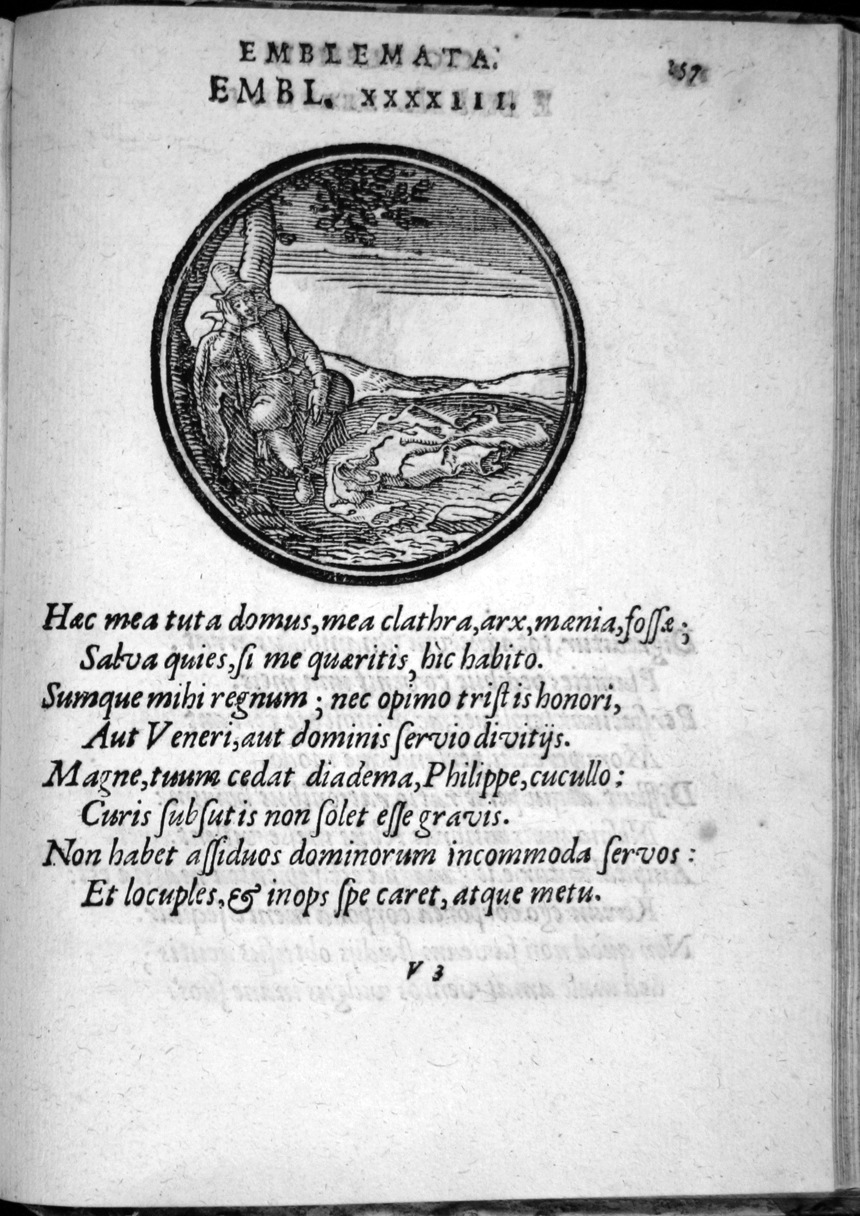 EMBLEMATA.
157
EMBL. XXXXIII.
Hæc mea tuta domus, mea clathra, arx, mænia, fossæ;
Salva quies, si me quæritis, hìc habito.
Sumque mihi regnum; nec opimo tristis honori,
Aut Veneri, aut dominis servio divitijs.
Magne, tuum cedat diadema, Philippe, cucullo:
Curis subsutis non solet esse gravis.
Non habet assiduos dominorum incommoda servos:
Et locuples, & inops spe caret, atque metu.
V 3